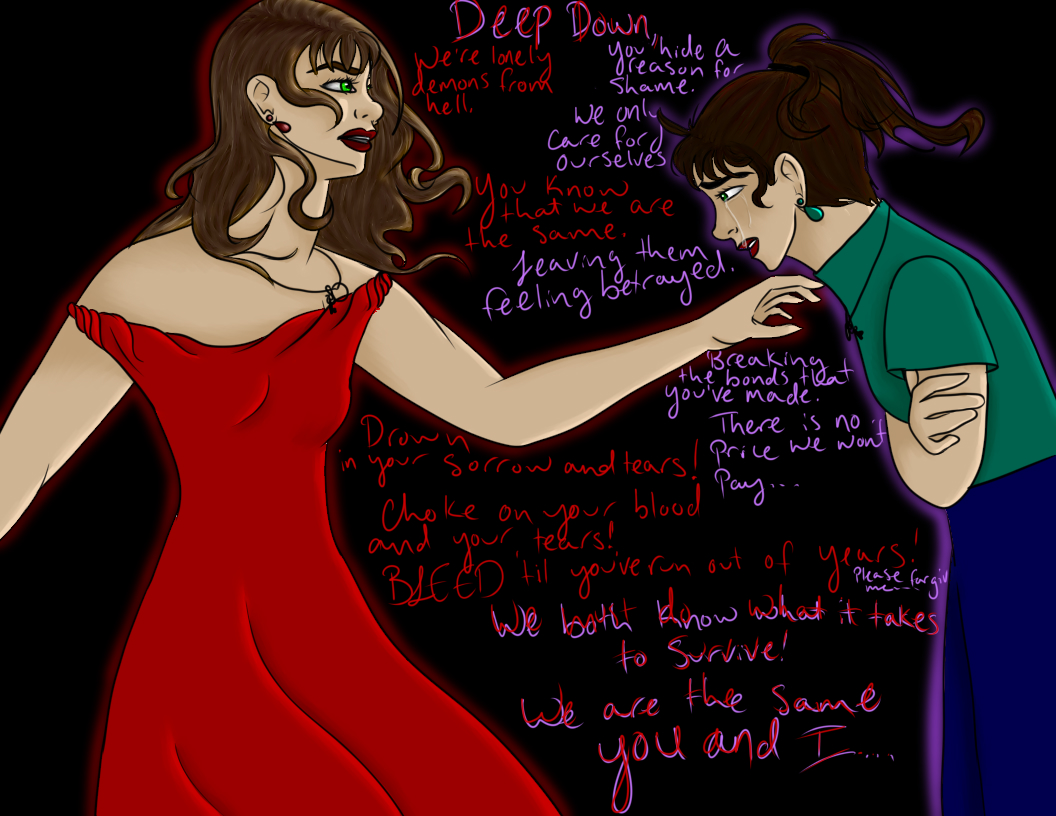 Deep Down,
We're lonely
demons from
hell.
you hide a
reason for
shame.
We only
Care for
ourselves
You know
that we are
the same.
Leaving them
feeling betrayed.
Breaking
the bonds that
you've made.
There is no
Price we won't
Pay...
Drown
in your sorrow and tears!
Choke on your blood
and your tears!
BLEED 'til you've run out of years!
Please forgiv
me...
We both know what it takes
to Survive!
We are the same
you and I....